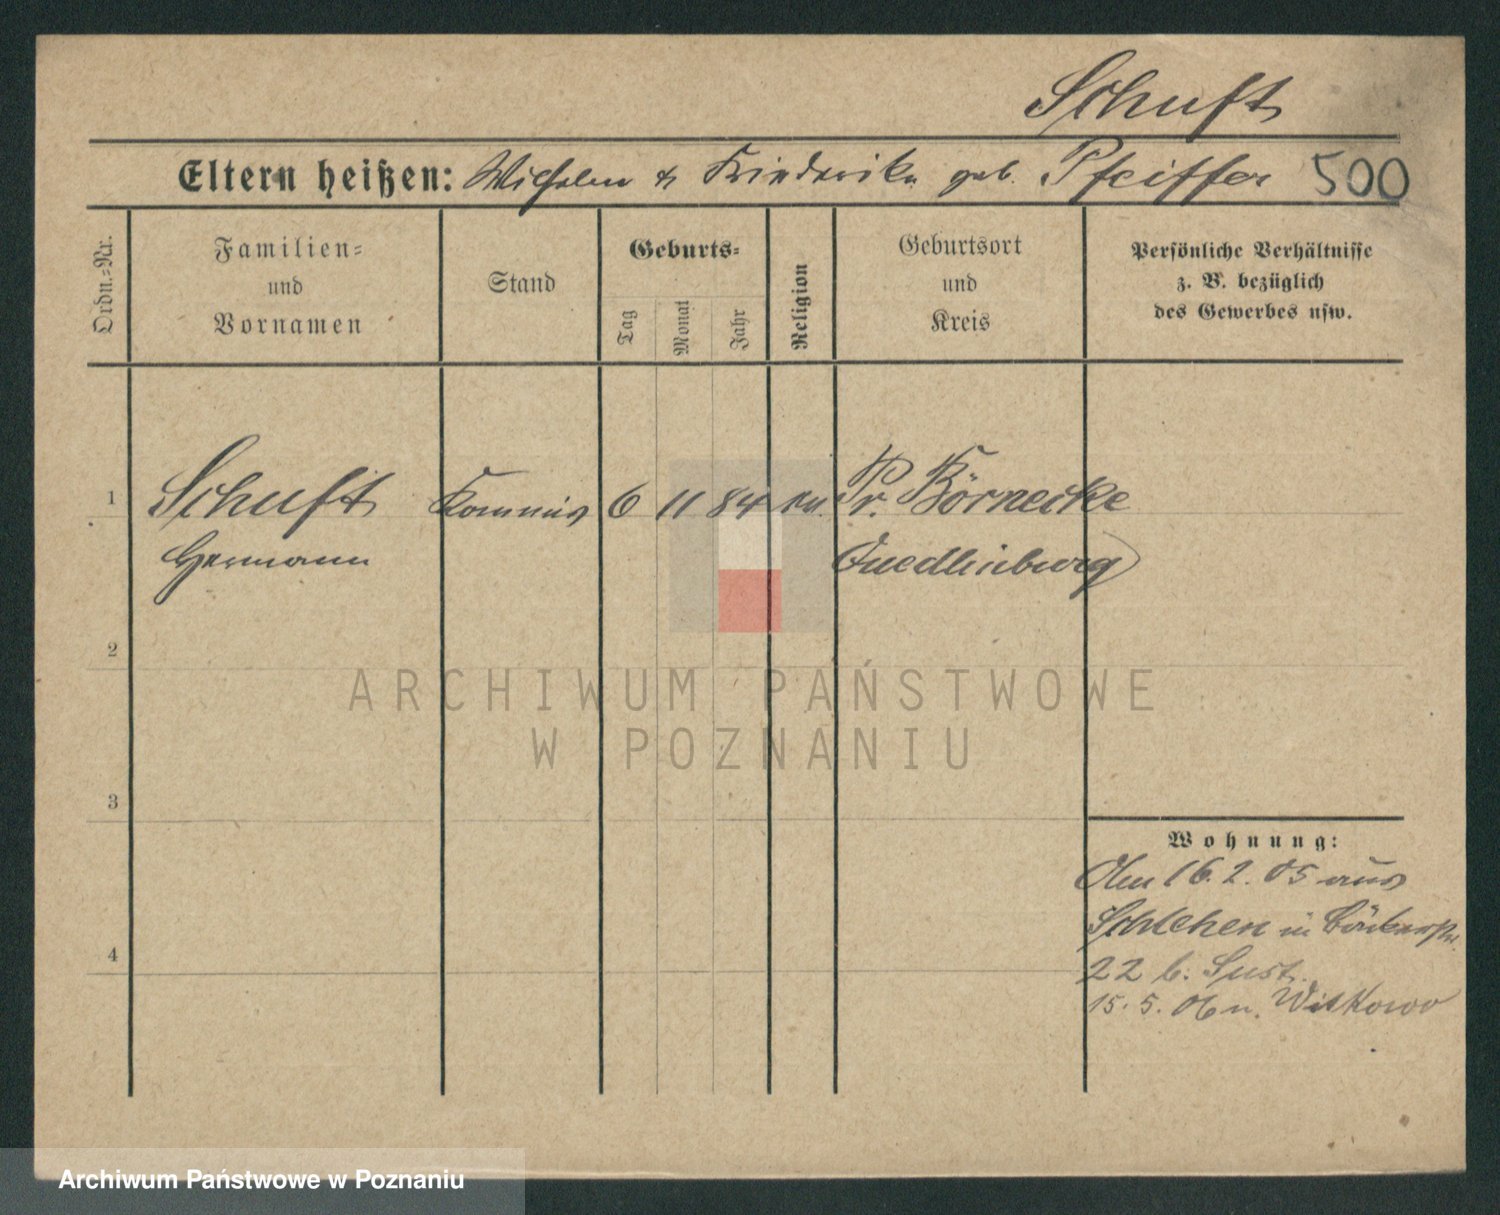 Schuft
Eltern heißen: Wilhelm & Friederike geb. Pfeiffer 500
Ordn.=Nr.
Familien=
und
Vornamen
Stand
Geburts=
Tag
Monat
Jahr
Religion
Geburtsort
und
Kreis
Persönliche Verhältnisse
z. B. bezüglich
des Gewerbes usw.
1 Schuft Kommis 6 11 84 Pr. Börnecke
Hermann Quedlinburg
2
3
4
Wohnung:
Am 16.2.05 aus
Schlehen in Bäckerstr.
22 b.
15.5.06 n. Witkowo
ARCHIWUM PAŃSTWOWE
W POZNANIU
Archiwum Państwowe w Poznaniu